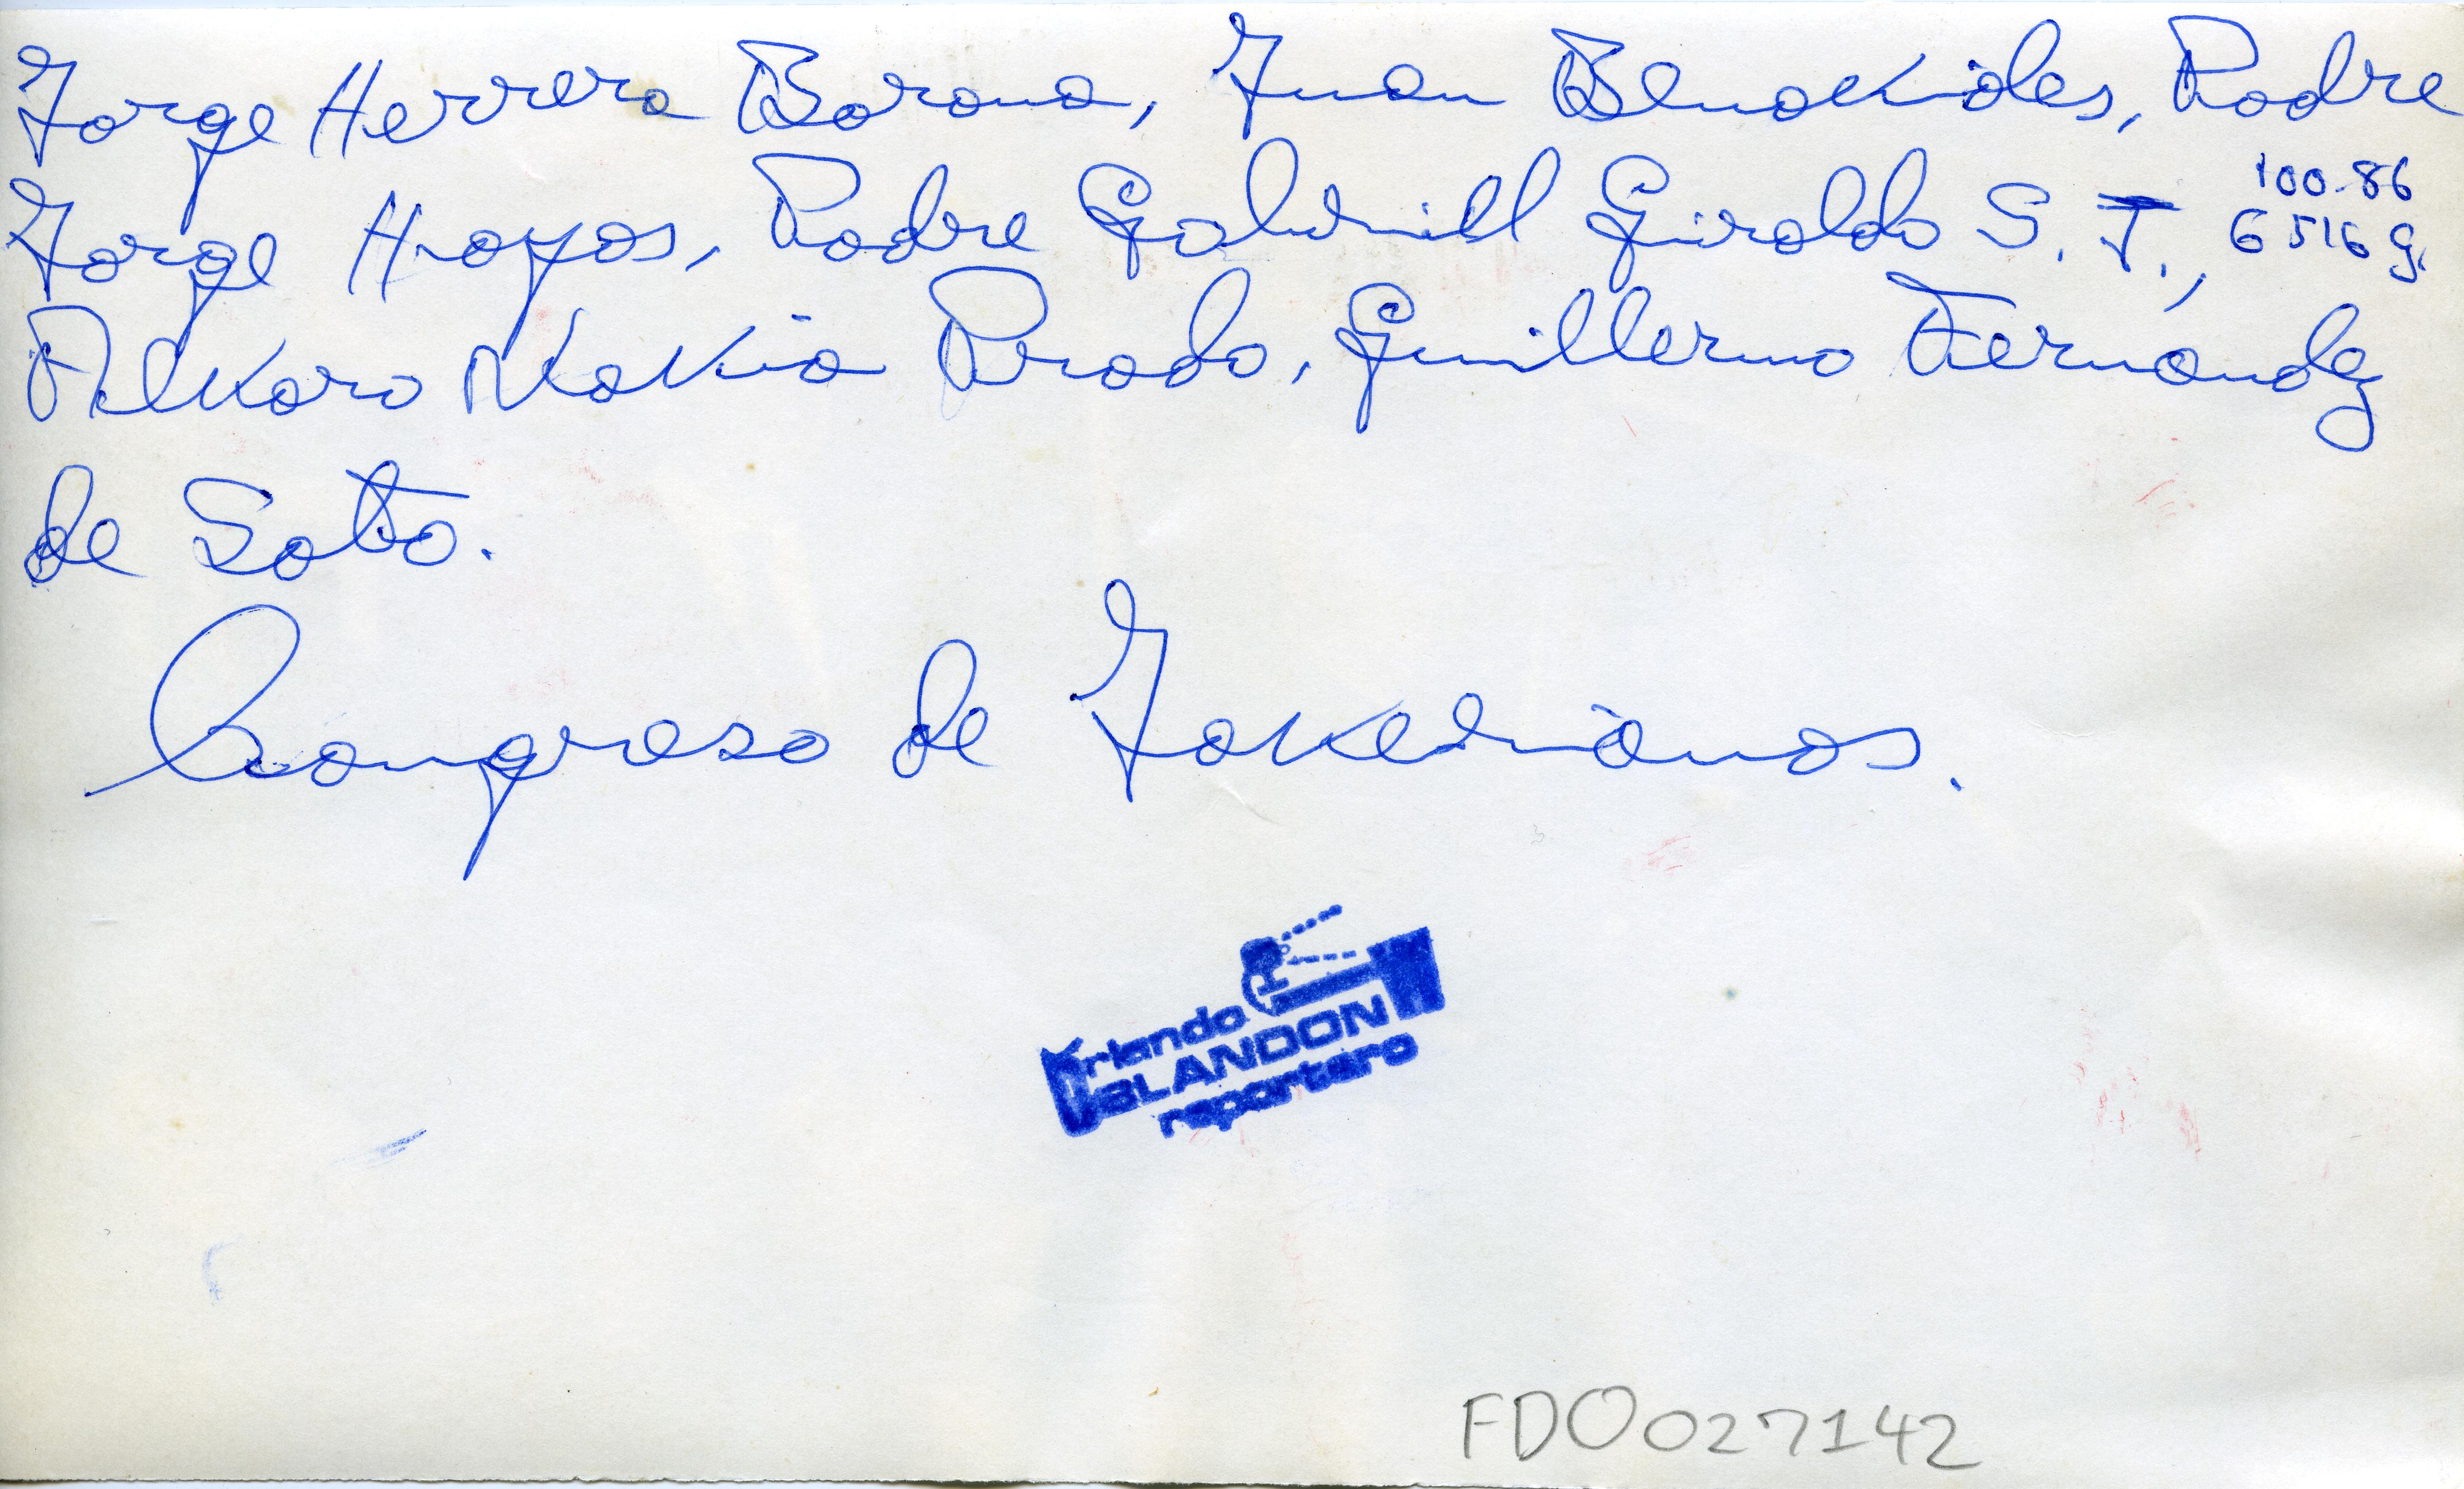 Jorge Herrera Barona, Juan Benavides, Padre
Jorge Hoyos, Padre Gabriell Giraldo S. J.,
100-86
6516 g.
Alvaro Navia Prado, Guillermo Fernandez
de Soto.
Congreso de Javerianos.
Orlando
BLANDON
reportero
FDO027142